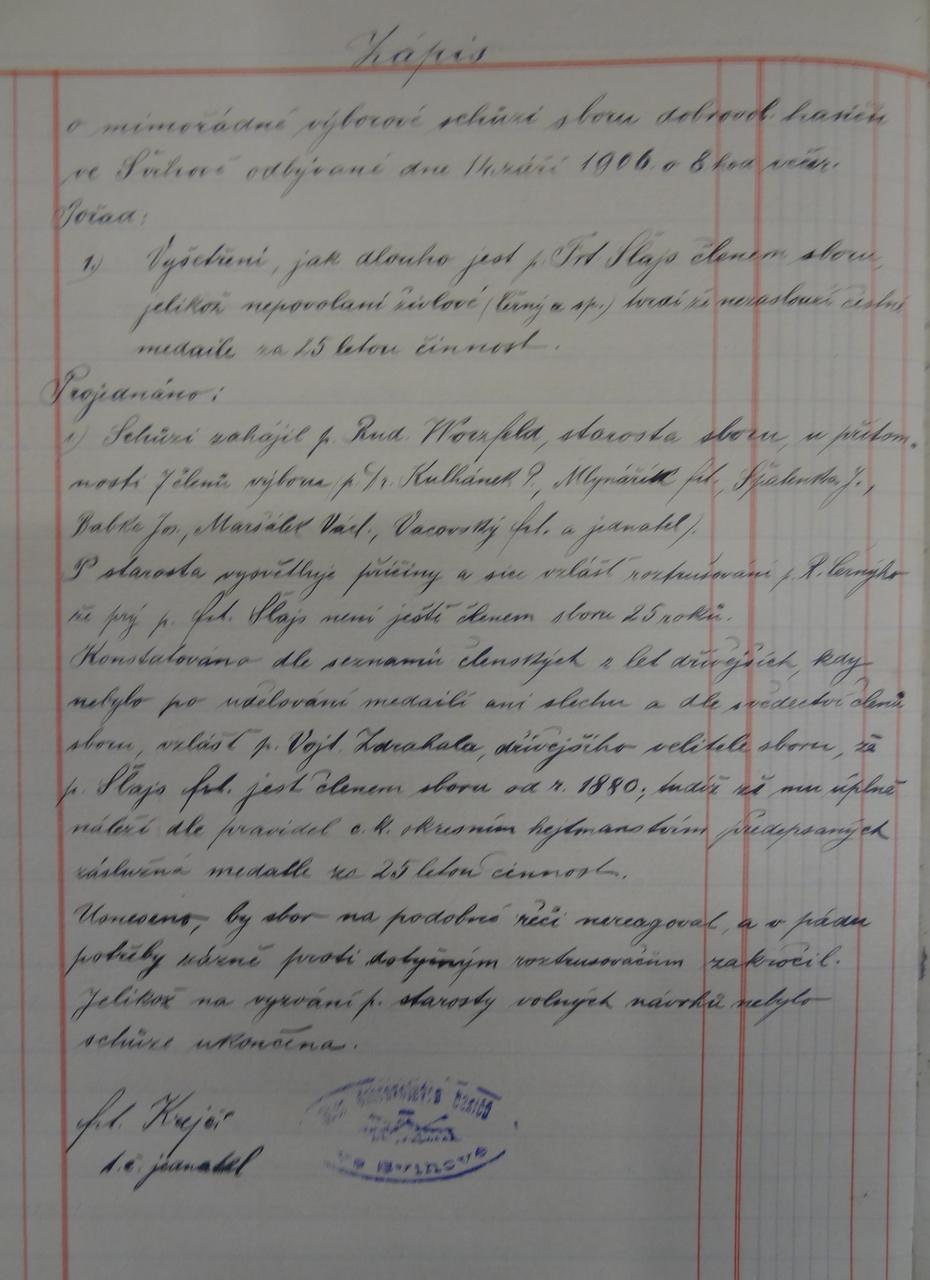 Zápis
o mimořádné výborové schůzi sboru dobrovol. hasičů
ve Svihově odbývané dne 14. září 1906 o 8 hod večer.
Pořad:
1.) Vyšetření, jak dlouho jest p. Frt Šlajs členem sboru,
jelikož nepovolaní živlové (Černý a sp.) tvrdí že nezaslouží čestné
medaile za 25 letou činnost.
Projednáno:
1) Schůzi zahájil p. Rud. Worzfeld, starosta sboru, u přítom-
nosti 7 členů výboru p. Kulhánek P., Mlynářík frt., Špalenka J.,
Babke Jos., Maršálek Václ., Vacovský frt. a jednatel).
P starosta vysvětluje příčiny a sice vzlášť roztrušování p. R. Černýho
že prý p. frt. Šlajs není ještě členem sboru 25 roků.
Konstatováno dle seznamů členských z let dřívějších, kdy
nebylo po udělování medailí ani slechu a dle svědectví členů
sboru, vzlášť p. Vojt. Zdrahala, dřívějšího velitele sboru, že
p. Šlajs frt. jest členem sboru od r. 1880; tudíž že mu úplně
náleží dle pravidel c. k. okresním hejtmanstvím předepsaných
záslužná medaile za 25 letou činnost.
Usneseno, by sbor na podobné řeči nereagoval, a v pádu
potřeby rázně proti roztrusovačům zakročil.
Jelikož na vyzvání p. starosty volných návrhů nebylo
schůze ukončena.
frt. Krejčí
t. č. jednatel